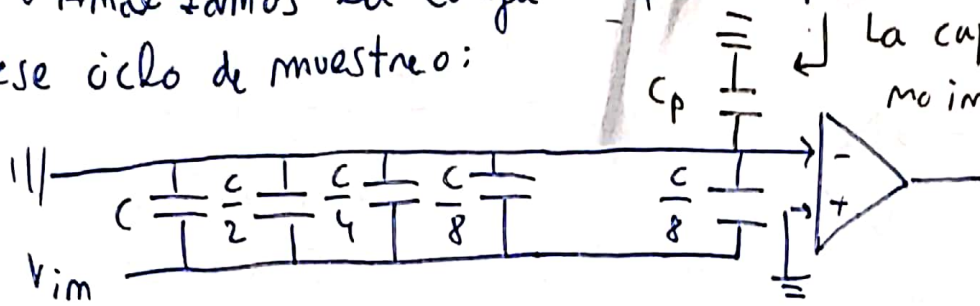 la carga
ese ciclo de muestreo:
La cap
no im
Cp
C C/2 C/4 C/8 C/8
-
+
Vin